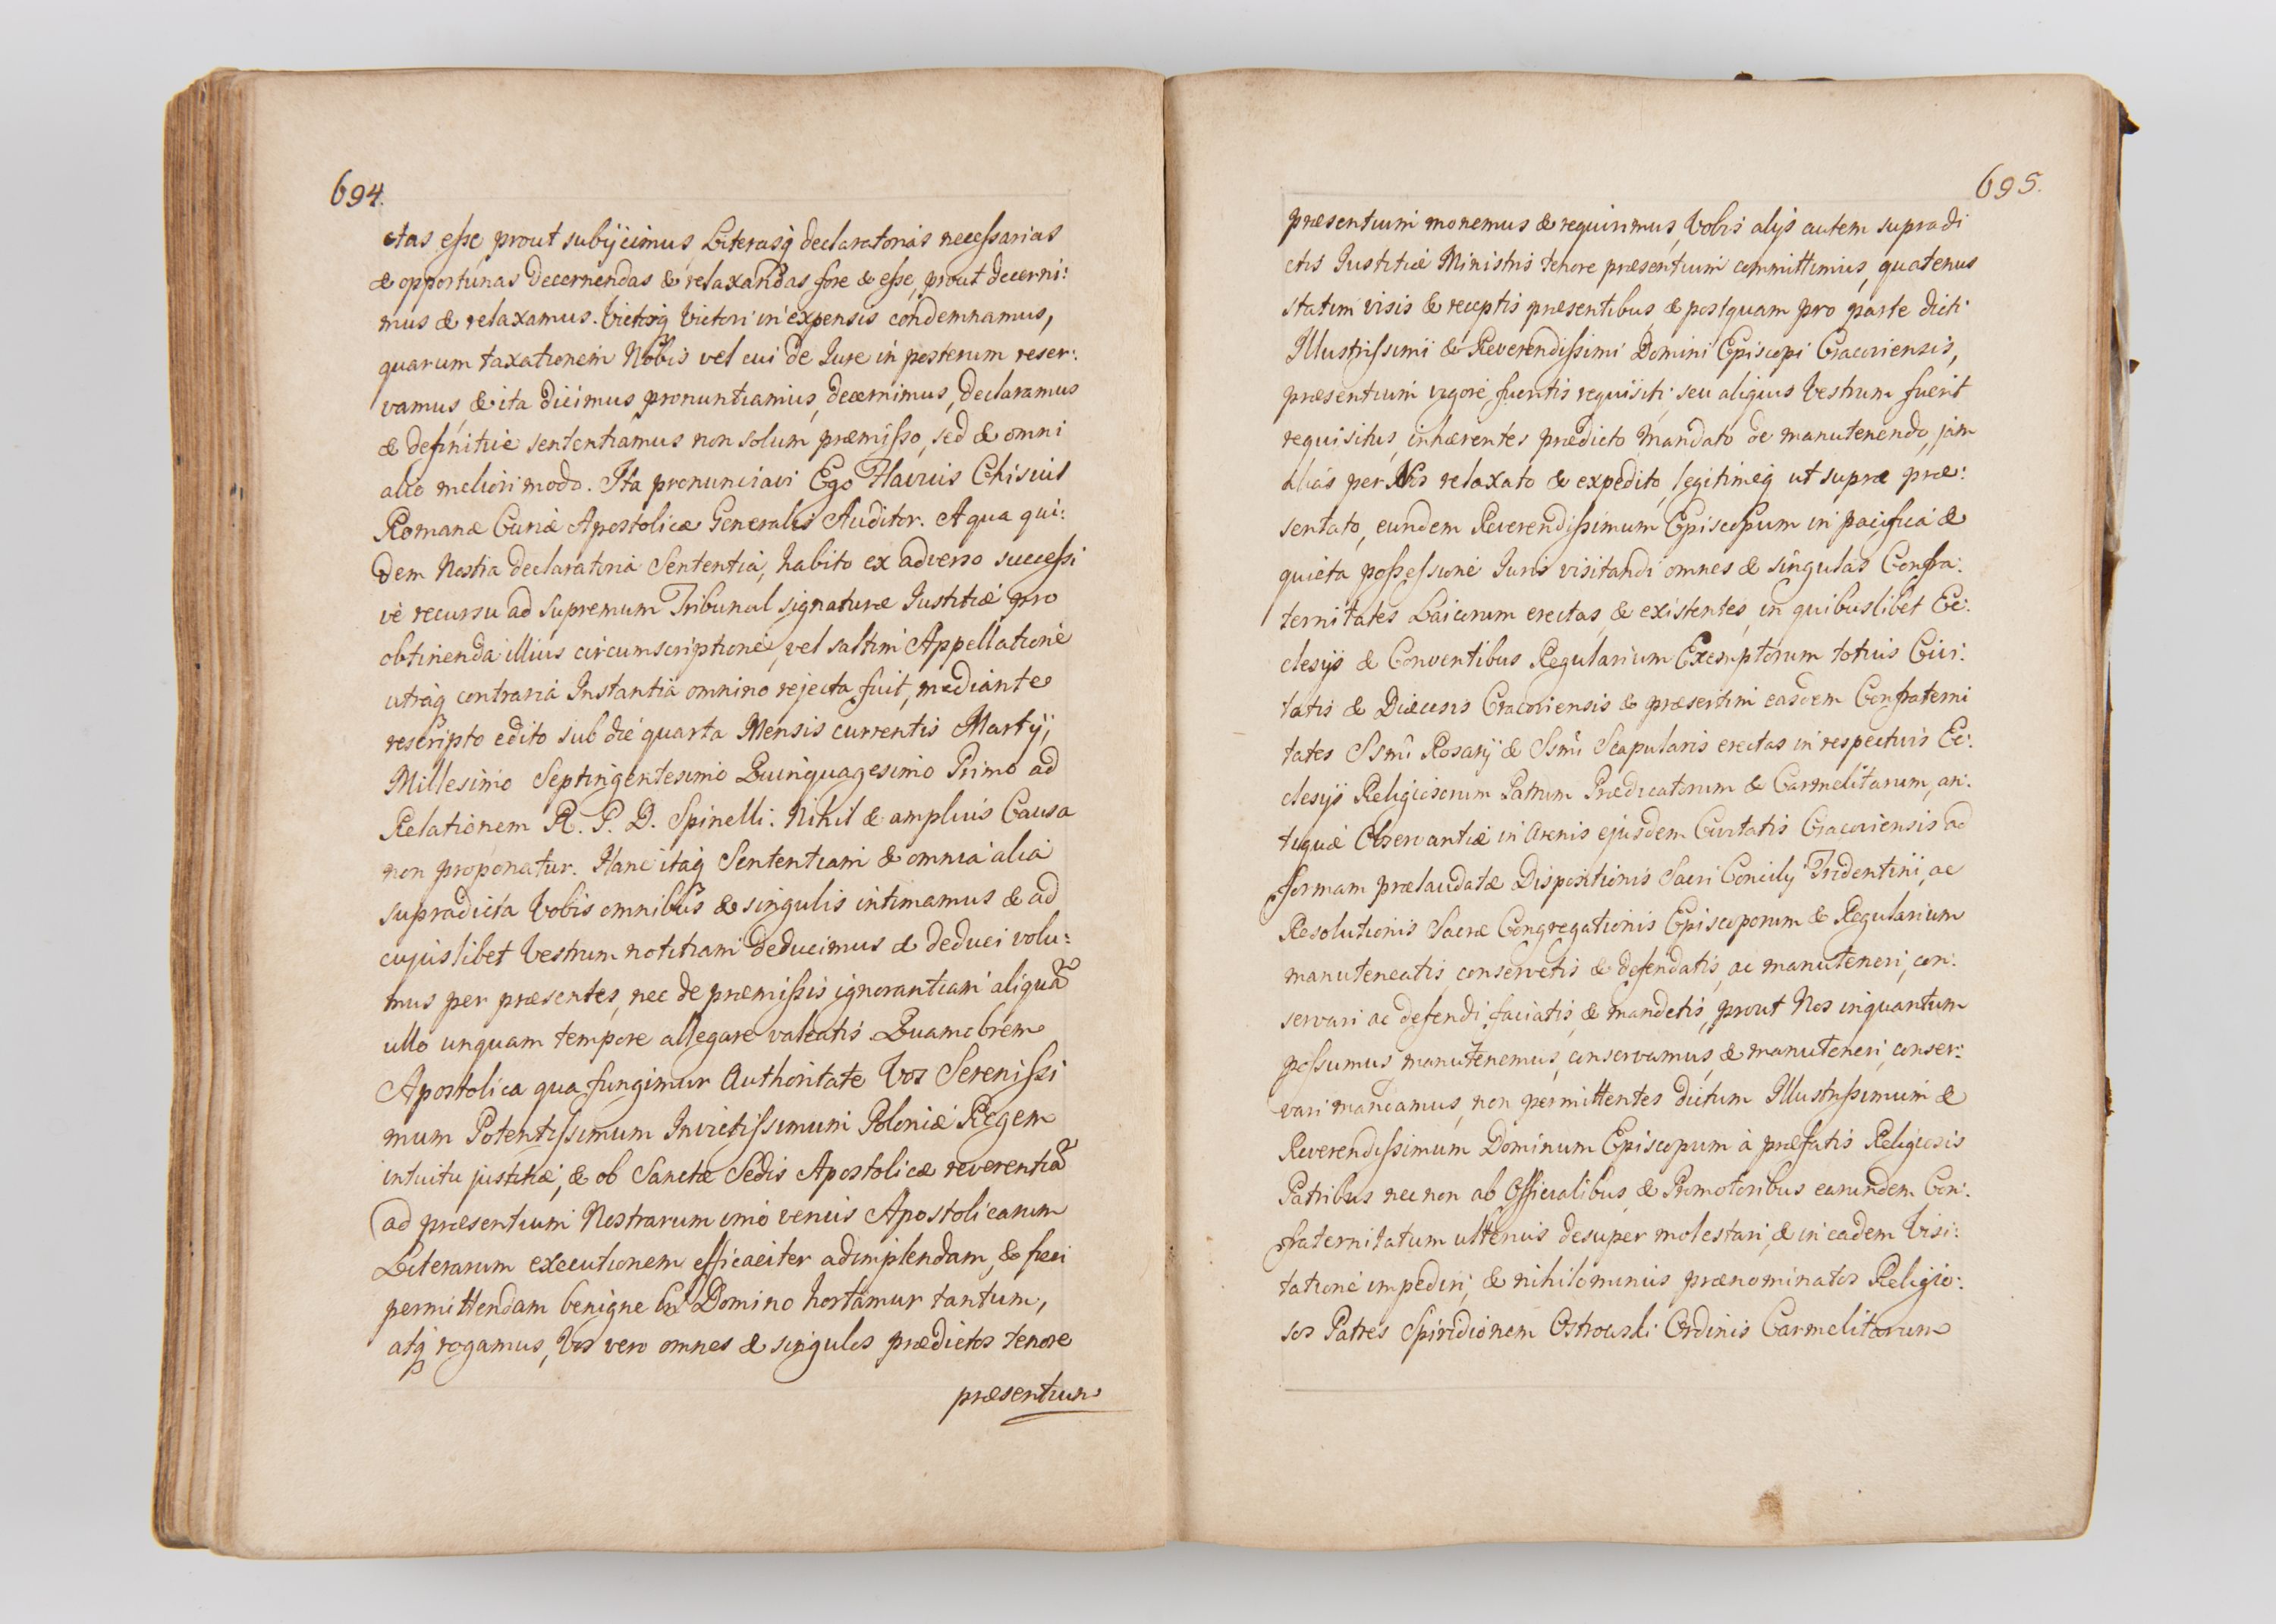 694.
ctas esse, prout subijcimus, Literasq declaratorias necessarias
& opportunas decernendas & relaxandas fore & esse, prout decerni:
mus & relaxamus. Victosq Victori in expensis condemnamus,
quarum taxationem Nobis vel cui de Iure in posterum reser:
vamus, & ita dicimus, pronuntiamus, decernimus, declaramus
& definitivè sententiamus non solum præmisso, sed & omni
alio meliori modo. Ita pronunciavi Ego Flavius Chisius
Romanæ Curiæ Apostolicæ Generalis Auditor. A qua qui:
dem Nostra declaratoria Sententia, habito ex adverso successi
vè recursu ad supremum Tribunal signaturæ Iustitiæ pro
obtinenda illius circumscriptione, vel saltim Appellatione
utràq contraria Instantia omnino rejecta fuit, mediante
rescripto edito sub die quarta Mensis currentis Martij,
Millesimo Septingentesimo Quinquagesimo Primo ad
Relationem R. P. D. Spinelli: Nihil & amplius Causa
non proponatur. Hanc itaq Sententiam & omnia alia
supradicta Vobis omnibus & singulis intimamus & ad
cujuslibet Vestrum notitiam deducimus & deduci volu:
mus per præsentes, nec de præmissis ignorantiam aliquã
ullo unquam tempore allegare valeatis. Quamobrem
Apostolica qua fungimur Authoritate Vos Serenissi
mum Potentissimum Invictissimum Poloniæ Regem
intuitu justitiæ, & ob Sanctæ Sedis Apostolicæ reverentiã
ad præsentium Nostrarum imo verius Apostolicarum
Literarum executionem efficaciter adimplendam, & fieri
permittendam benigne in Domino hortamur tantum,
atq rogamus, Vos vero omnes & singulos prædictos tenore
præsentium
695.
præsentium monemus & requirimus, Vobis alijs autem supradi
ctis Iustitiæ Ministris tenore præsentium committimus, quatenus
statim visis & receptis præsentibus, & postquam pro parte dicti
Illustrissimi & Reverendissimi Domini Episcopi Cracoviensis,
præsentium vigore, fueritis requisiti, seu aliquis Vestrum fuerit
requisitus, inhærentes prædicto Mandato de manutenendo, jam
alias per Nos relaxato & expedito, legitimeq ut supræ præ:
sentato, eundem Reverendissimum Episcopum in pacifica &
quieta possessione Iuris visitandi omnes & singulas Confra:
ternitates Laicorum erectas, & existentes, in quibuslibet Ec:
clesijs & Conventibus Regularium Exemptorum totius Civi:
tatis & Diæcesis Cracoviensis & præsertim easdem Confraterni
tates Ssmi Rosarij & Ssmi Scapularis erectas in respectivis Ec:
clesijs Religiosorum Patrum Prædicatorum & Carmelitarum, an:
tiquæ Observantiæ in Arenis ejusdem Civitatis Cracoviensis ad
formam prælaudatæ Dispositionis Sacri Concilij Tridentini, ac
Resolutionis Sacræ Congregationis Episcoporum & Regularium
manuteneatis, conservetis & defendatis, ac manuteneri, con:
servari ac defendi, faciatis, & mandetis, prout Nos inquantum
possumus manutenemus, conservamus, & manuteneri, conser:
vari mandamus, non permittentes dictum Illustrissimum &
Reverendissimum Dominum Episcopum à præfatis Religiosis
Patribus nec non ab Officialibus, & Promotoribus earundem Con:
fraternitatum ulterius desuper molestari, & in eadem Visi:
tatione impediri, & nihilominus prænominatos Religio:
sos Patres Spiridionem Ostrowski Ordinis Carmelitarum